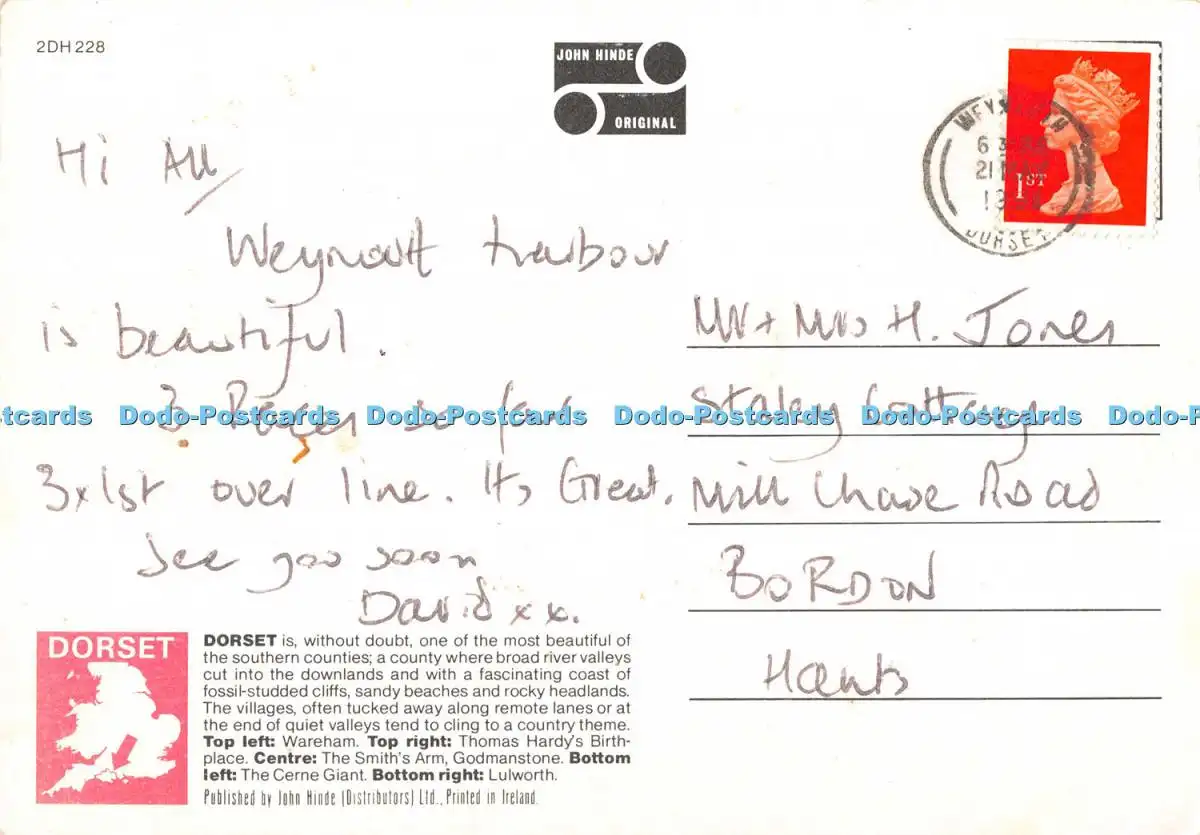 2DH 228
JOHN HINDE
ORIGINAL
WEYMOUTH
21
DORSET
1ST
Hi All
Weymouth harbour
is beautiful.
3 Races so far
3x1st over line. Its Great.
See you soon
David xx.
Mr + Mrs H. Jones
Staley Cottage
Mill Chase Road
BORDON
Hants
Dodo-Postcards Dodo-Postcards Dodo-Postcards Dodo-Postcards
DORSET
DORSET is, without doubt, one of the most beautiful of
the southern counties; a county where broad river valleys
cut into the downlands and with a fascinating coast of
fossil-studded cliffs, sandy beaches and rocky headlands.
The villages, often tucked away along remote lanes or at
the end of quiet valleys tend to cling to a country theme.
Top left: Wareham. Top right: Thomas Hardy's Birth-
place. Centre: The Smith's Arm, Godmanstone. Bottom
left: The Cerne Giant. Bottom right: Lulworth.
Published by John Hinde (Distributors) Ltd., Printed in Ireland.